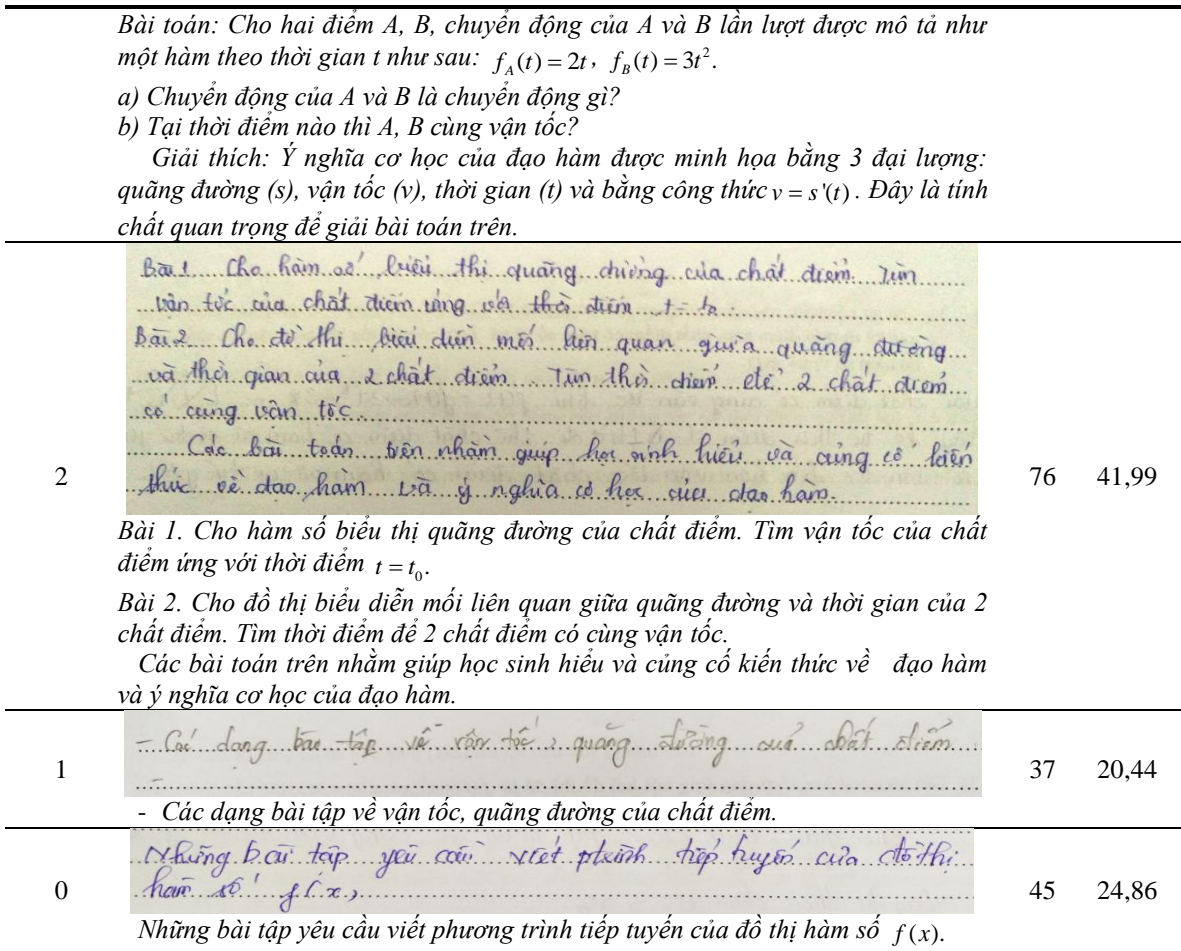 Bài toán: Cho hai điểm A, B, chuyển động của A và B lần lượt được mô tả như
một hàm theo thời gian t như sau: f_A(t) = 2t, f_B(t) = 3t².
a) Chuyển động của A và B là chuyển động gì?
b) Tại thời điểm nào thì A, B cùng vận tốc?
Giải thích: Ý nghĩa cơ học của đạo hàm được minh họa bằng 3 đại lượng:
quãng đường (s), vận tốc (v), thời gian (t) và bằng công thức v = s'(t). Đây là tính
chất quan trọng để giải bài toán trên.
Bài 1 Cho hàm số biểu thị quãng đường của chất điểm. Tìm
vận tốc của chất điểm ứng với thời điểm t = t₀.
Bài 2 Cho đồ thị biểu diễn mối liên quan giữa quãng đường
và thời gian của 2 chất điểm. Tìm thời điểm để 2 chất điểm
có cùng vận tốc.
Các bài toán trên nhằm giúp học sinh hiểu và củng cố kiến
thức về đạo hàm và ý nghĩa cơ học của đạo hàm.
2 76 41,99
Bài 1. Cho hàm số biểu thị quãng đường của chất điểm. Tìm vận tốc của chất
điểm ứng với thời điểm t = t₀.
Bài 2. Cho đồ thị biểu diễn mối liên quan giữa quãng đường và thời gian của 2
chất điểm. Tìm thời điểm để 2 chất điểm có cùng vận tốc.
Các bài toán trên nhằm giúp học sinh hiểu và củng cố kiến thức về đạo hàm
và ý nghĩa cơ học của đạo hàm.
- Các dạng bài tập về vận tốc, quãng đường của chất điểm.
1 37 20,44
- Các dạng bài tập về vận tốc, quãng đường của chất điểm.
Những bài tập yêu cầu viết phương trình tiếp tuyến của đồ thị
hàm số f(x).
0 45 24,86
Những bài tập yêu cầu viết phương trình tiếp tuyến của đồ thị hàm số f(x).